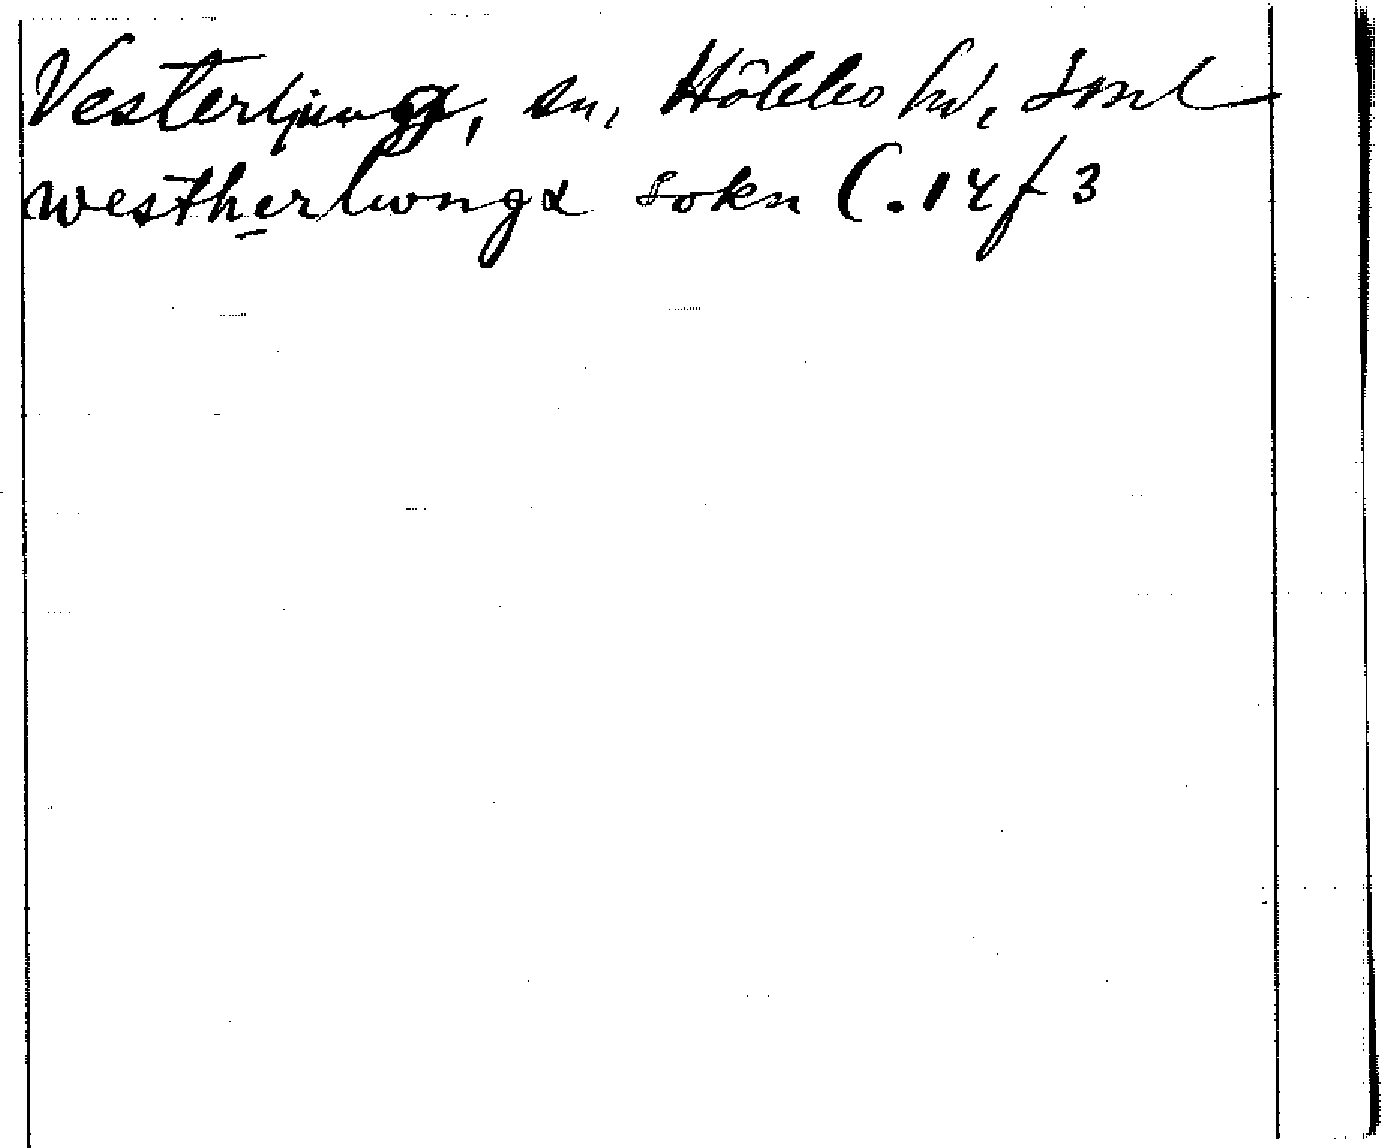 Vesterljung, sn, Hölebo hd, Sml
westherliongæ sokn C. 14 f 3